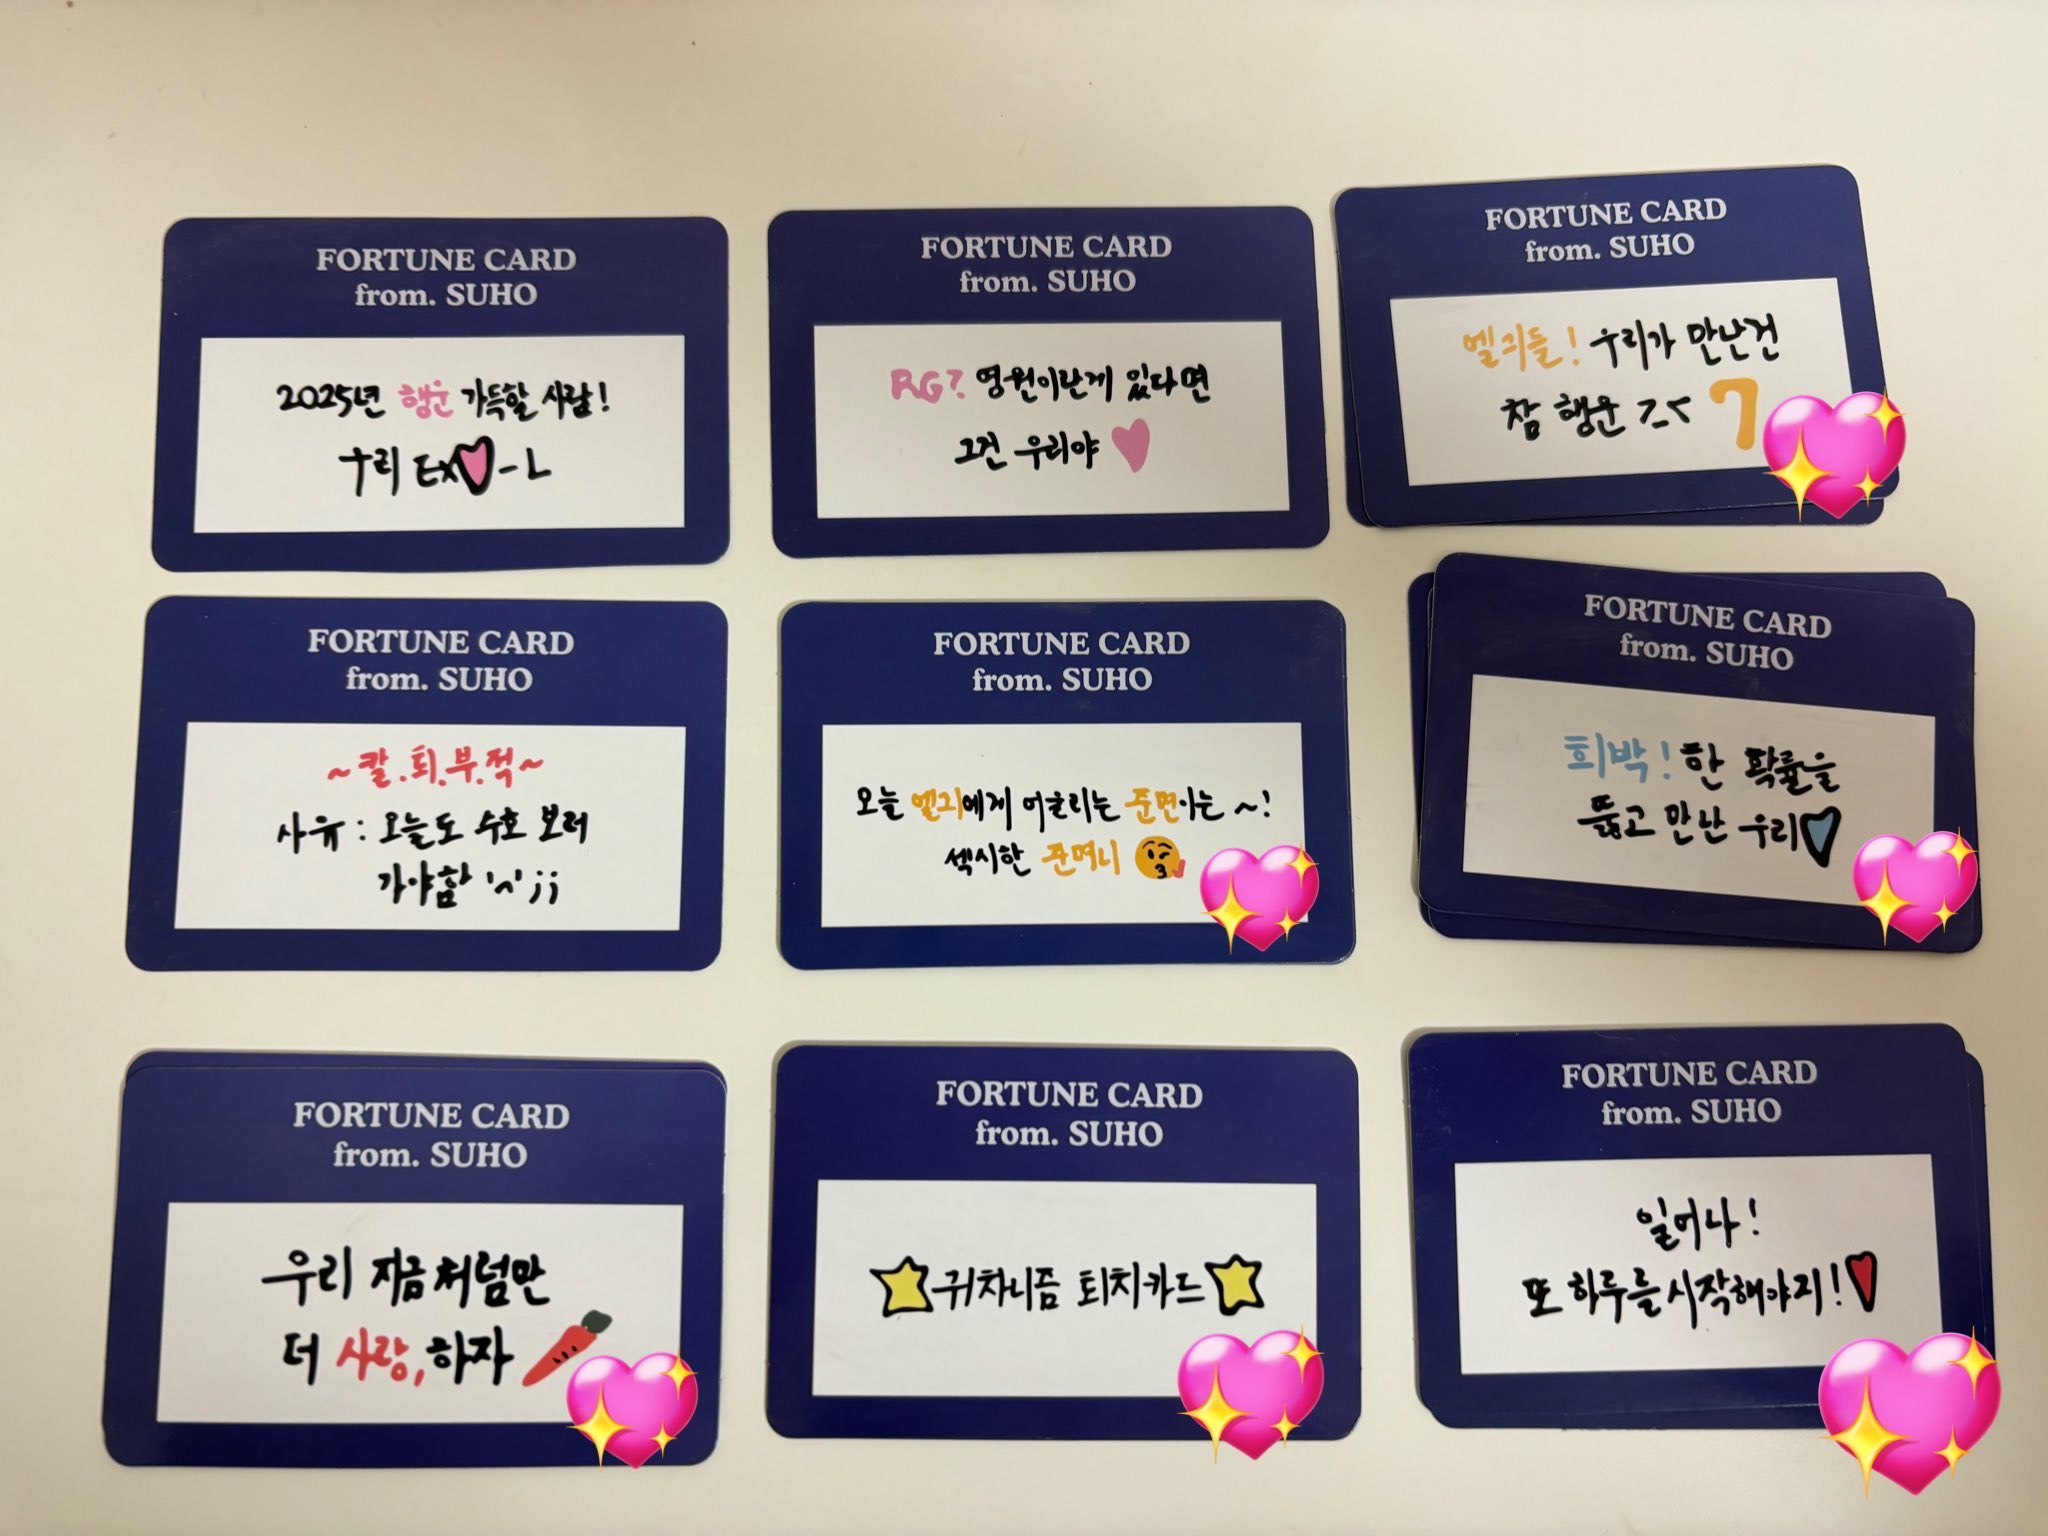 FORTUNE CARD
from. SUHO
2025년 행운 가득할 사람!
우리 EX-L
FORTUNE CARD
from. SUHO
RG? 영원이란게 있다면
그건 우리야
FORTUNE CARD
from. SUHO
엘기들! 우리가 만난건
참 행운 ㄱㅡ< 7
FORTUNE CARD
from. SUHO
~칼.퇴.부.적~
사유 : 오늘도 수호 보러
가야함 'ㅅ' ;;
FORTUNE CARD
from. SUHO
오늘 엘기에게 어울리는 준면이는 ~!
섹시한 준머니
FORTUNE CARD
from. SUHO
희박! 한 확률을
뚫고 만난 우리
FORTUNE CARD
from. SUHO
우리 지금처럼만
더 사랑,하자
FORTUNE CARD
from. SUHO
귀차니즘 퇴치카드
FORTUNE CARD
from. SUHO
일어나!
또 하루를 시작해야지!